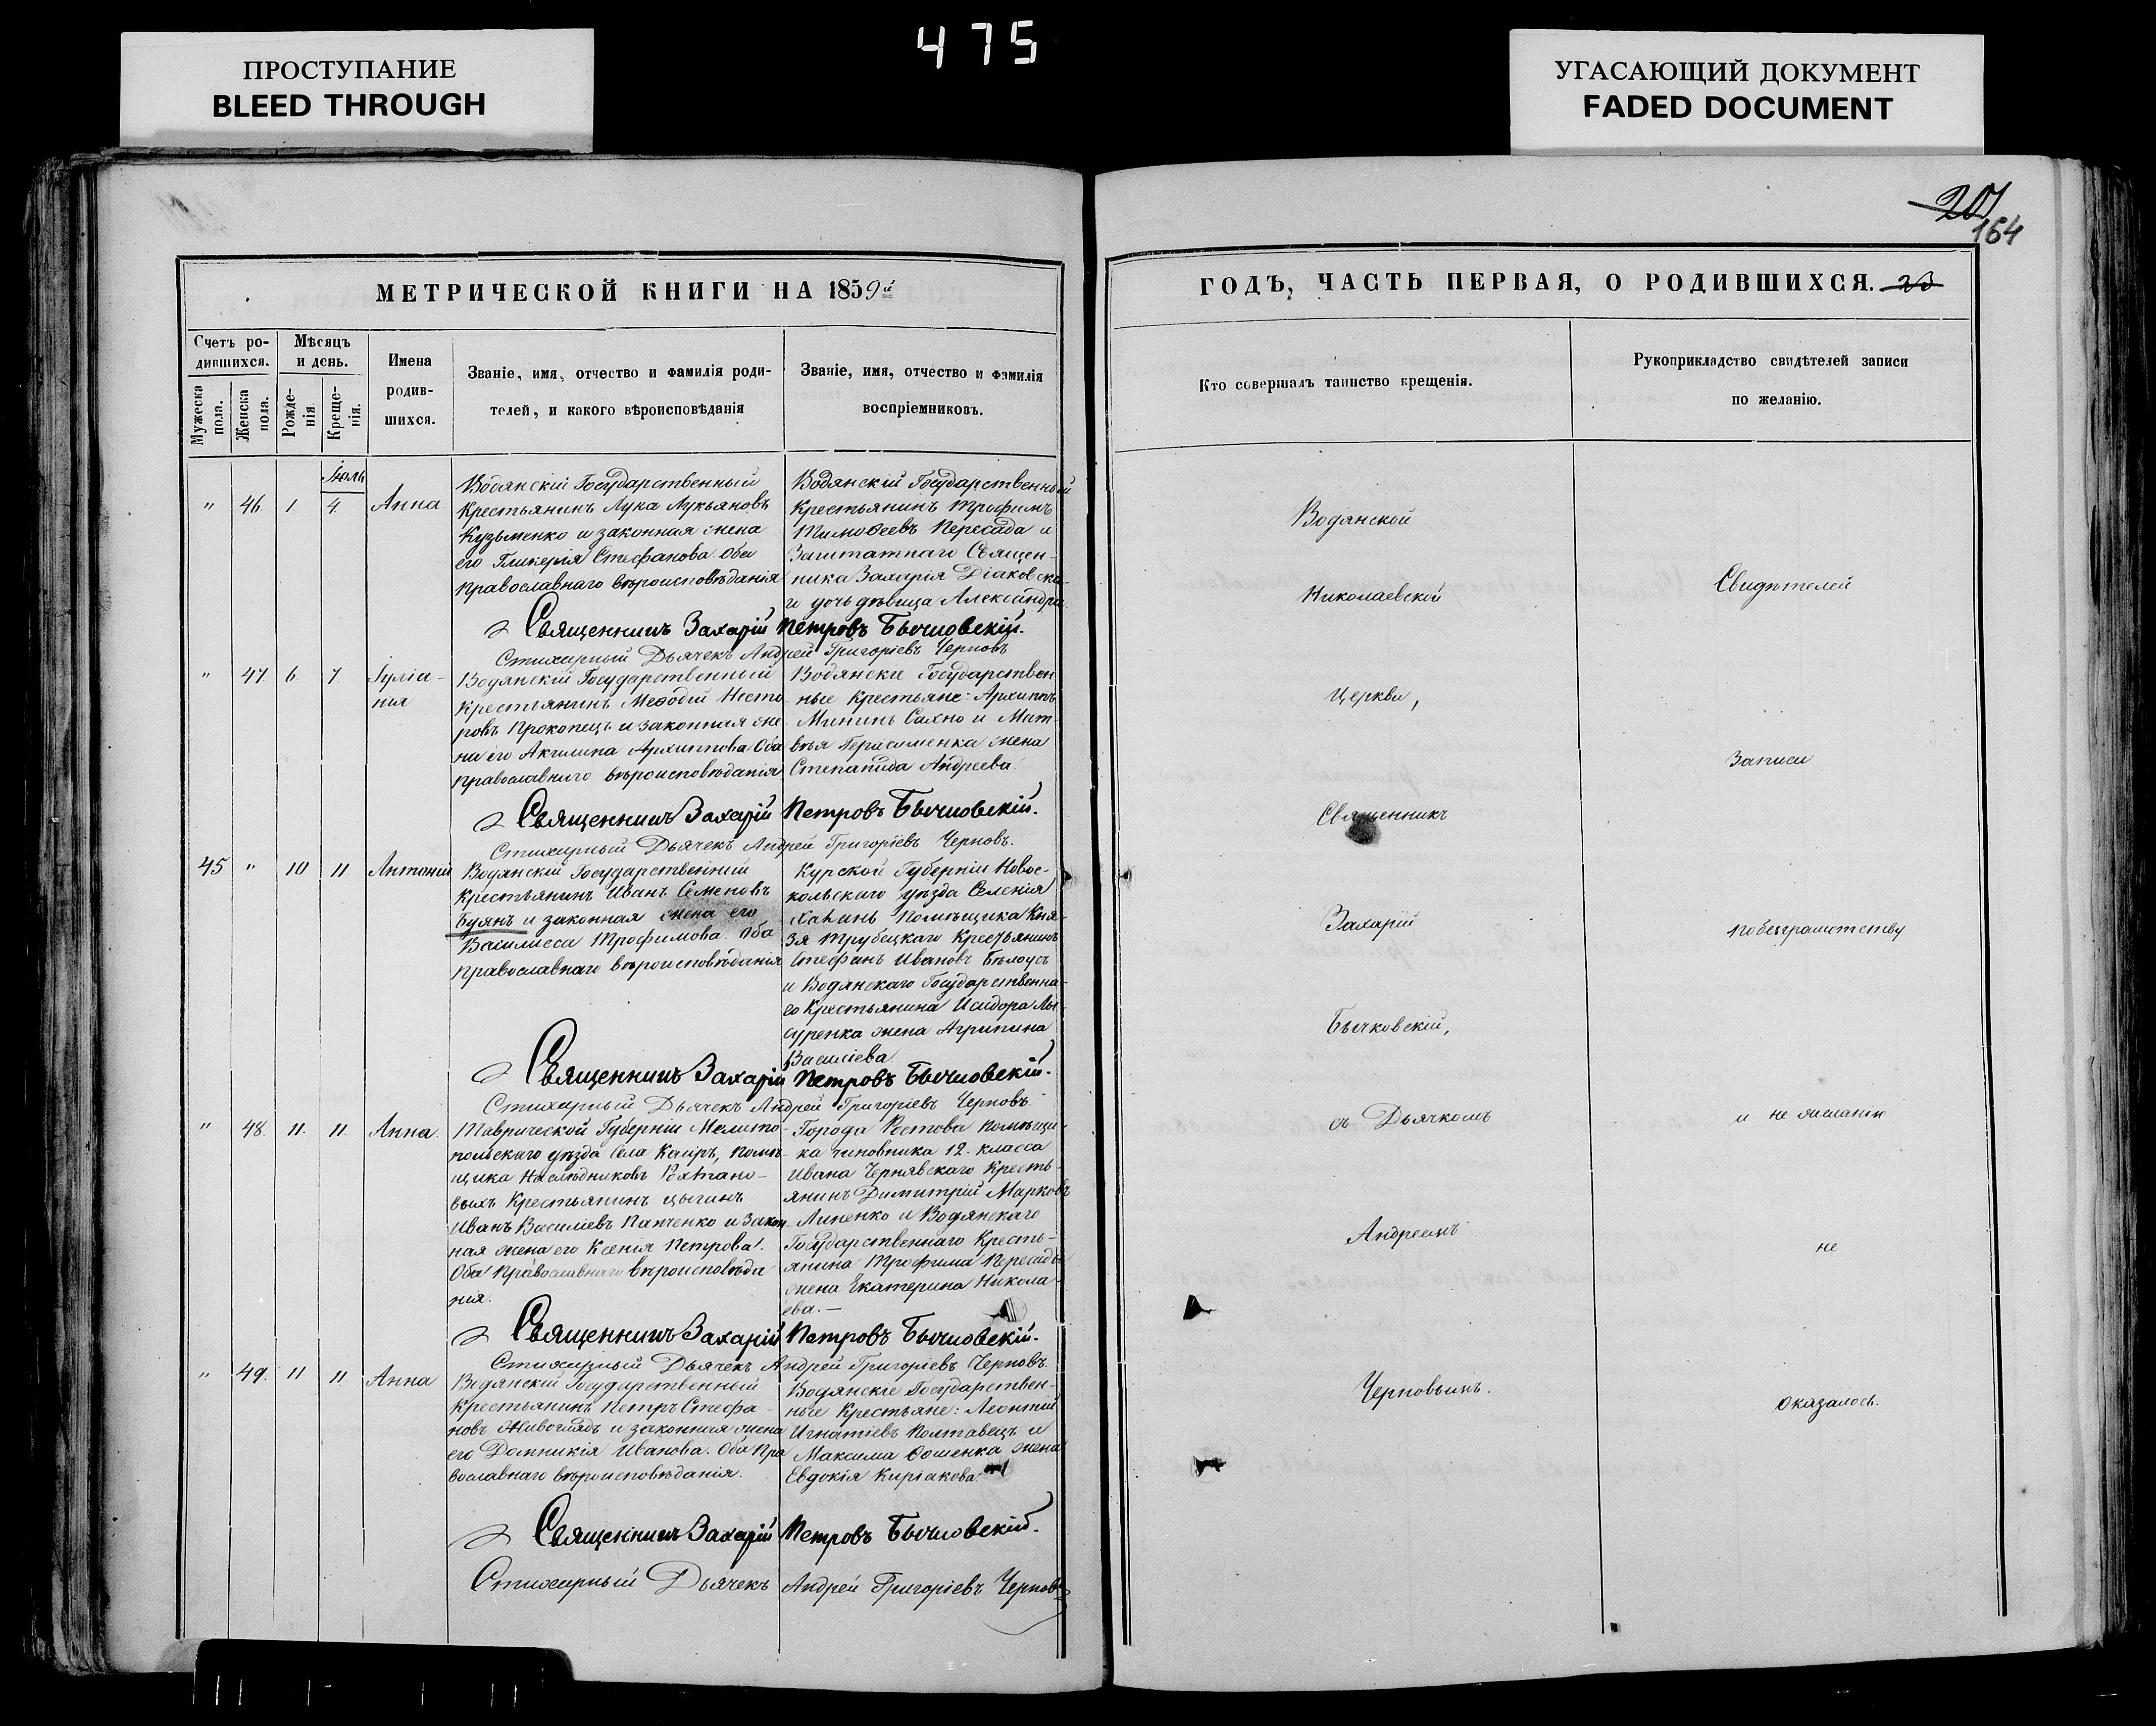 475
ПРОСТУПАНИЕ
BLEED THROUGH
УГАСАЮЩИЙ ДОКУМЕНТ
FADED DOCUMENT
207
164
МЕТРИЧЕСКОЙ КНИГИ НА 1859й
Счетъ ро-
дившихся.
Мужеска пола.
Женска пола.
Мѣсяцъ
и день.
Рожде-
нія.
Креще-
нія.
Имена
родив-
шихся.
Званіе, имя, отчество и фамилія роди-
телей, и какого вѣроисповѣданія
Званіе, имя, отчество и фамилія
воспріемниковъ.
Іюль
" 46. 1 4. Анна
Водянскій Государственный
Крестьянинъ Лука Лукьяновъ
Кузьменко и законная жена
его Гликерія Стефанова. Оба
православнаго вѣроисповѣданія
Водянскій Государственный
Крестьянинъ Трофимъ
Тимоѳеевъ Пересада и
Заштатнаго Священ-
ника Захарія Діаковска-
го дочь дѣвица Александра.
Священникъ Захарій Петровъ Бычковскій.
Стихарный Дьячекъ Андрей Григоріевъ Черновъ
" 47. 6. 7. Іуліа-
нія
Водянскій Государственный
Крестьянинъ Меѳодій Несто-
ровъ Прокопецъ и законная же-
на его Акилина Архиппова Оба
православнаго вѣроисповѣданія
Водянскіе Государствен
ные Крестьяне: Архиппъ
Мининъ Сахно и Мат-
вѣя Герасименка жена
Степанида Андреева.
Священникъ Захарій Петровъ Бычковскій.
Стихарный Дьячекъ Андрей Григоріевъ Черновъ.
45 " 10 11 Антоній
Водянскій Государственный
Крестьянинъ Иванъ Семеновъ
Буянъ и законная жена его
Василиса Трофимова. Оба
православнаго вѣроисповѣданія
Курской Губерніи Новос-
кольскаго уѣзда Селенія
Помѣщика Кня-
зя Трубецкаго Крестьянинъ
Стефанъ Ивановъ Бѣлоусъ
и Водянскаго Государственна-
го Крестьянина Исидора
жена Агрипина
Василіева
Священникъ Захарій Петровъ Бычковскій.
Стихарный Дьячекъ Андрей Григоріевъ Черновъ.
" 48. 11. 11. Анна.
Таврической Губерніи Мелито-
польскаго уѣзда Села Каиръ, помѣ-
щика Наслѣдниковъ
выхъ Крестьянинъ цыганъ
Иванъ Василіевъ Панченко и закон-
ная жена его Ксенія Петрова.
Оба православнаго вѣроисповѣда
нія.
Города Ростова помѣщи-
ка чиновника 12. класса
Ивана Чернявскаго Кресть-
янинъ Димитрій Марковъ
Липенко и Водянскаго
Государственнаго Кресть-
янина Трофима Пересады
жена Екатерина Никола-
ева.—
Священникъ Захарій Петровъ Бычковскій.
Стихарный Дьячекъ Андрей Григоріевъ Черновъ.
" 49. 11 11 Анна
Водянскій Государственный
Крестьянинъ Петръ Стефа-
новъ Живоглядъ и законная жена
его Домникія Иванова. Оба Пра
вославнаго вѣроисповѣданія.
Водянскіе Государствен-
ные Крестьяне: Леонтій
Игнатіевъ Полтавецъ и
Максима жена
Евдокія Киріакова.
Священникъ Захарій Петровъ Бычковскій.
Стихарный Дьячекъ Андрей Григоріевъ Черновъ
ГОДЪ, ЧАСТЬ ПЕРВАЯ, О РОДИВШИХСЯ.
Кто совершалъ таинство крещенія.
Рукоприкладство свидѣтелей записи
по желанію.
Водянской
Николаевской
Церкви,
Священникъ
Захарій
Бычковскій,
съ Дьячкомъ
Андреемъ
Черновымъ.
Свидѣтелей
Записи
по безграмотству
и не желанію
не
оказалось.